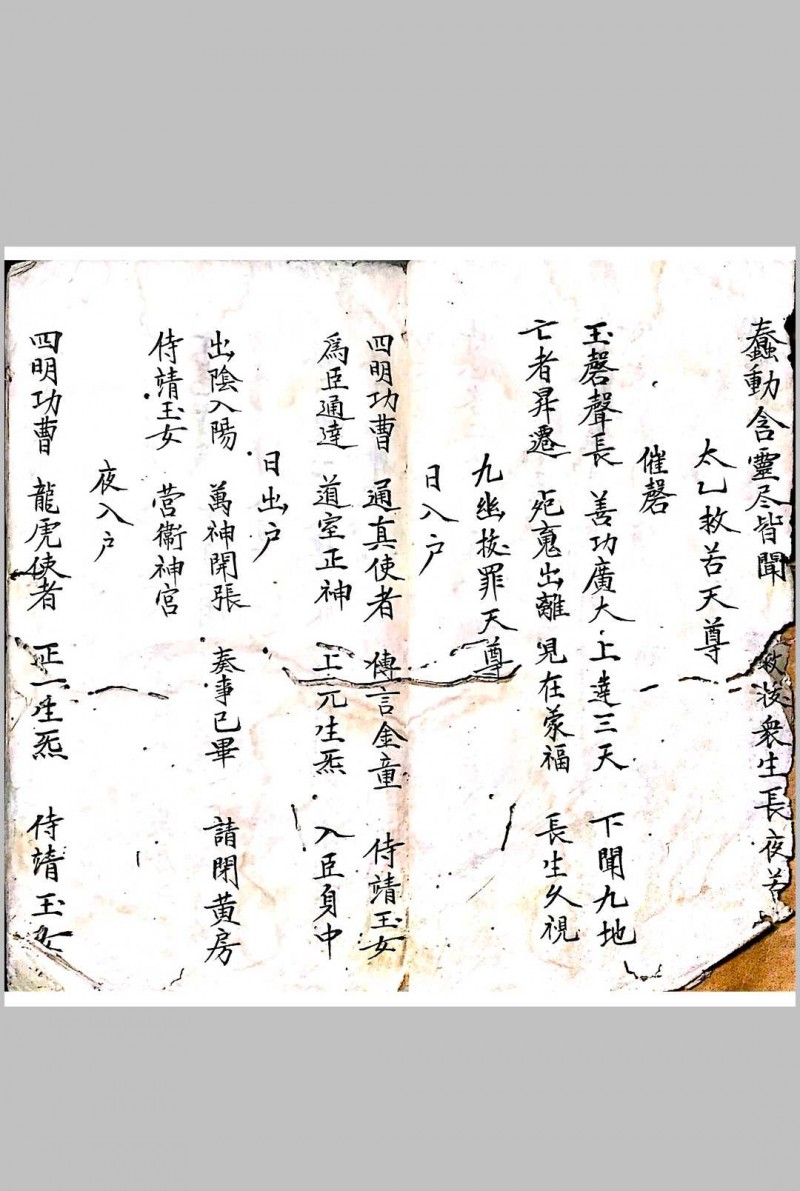 蠢動含靈尽皆聞 拔濟衆生長夜苦
太乙救苦天尊
催磬
玉磬聲長 善功廣大 上達三天 下聞九地
亡者昇遷 寃䰟出離 見在蒙福 長生久視
九幽拔罪天尊
日入户
四明功曹 通真使者 傳言金童 侍靖玉女
爲臣通達 道室正神 上元生炁 入臣身中
日出户
出陰入陽 萬神開張 奏事已畢 請閉黄房
侍靖玉女 营衞神宮
夜入户
四明功曹 龍虎使者 正一生炁 侍靖玉女